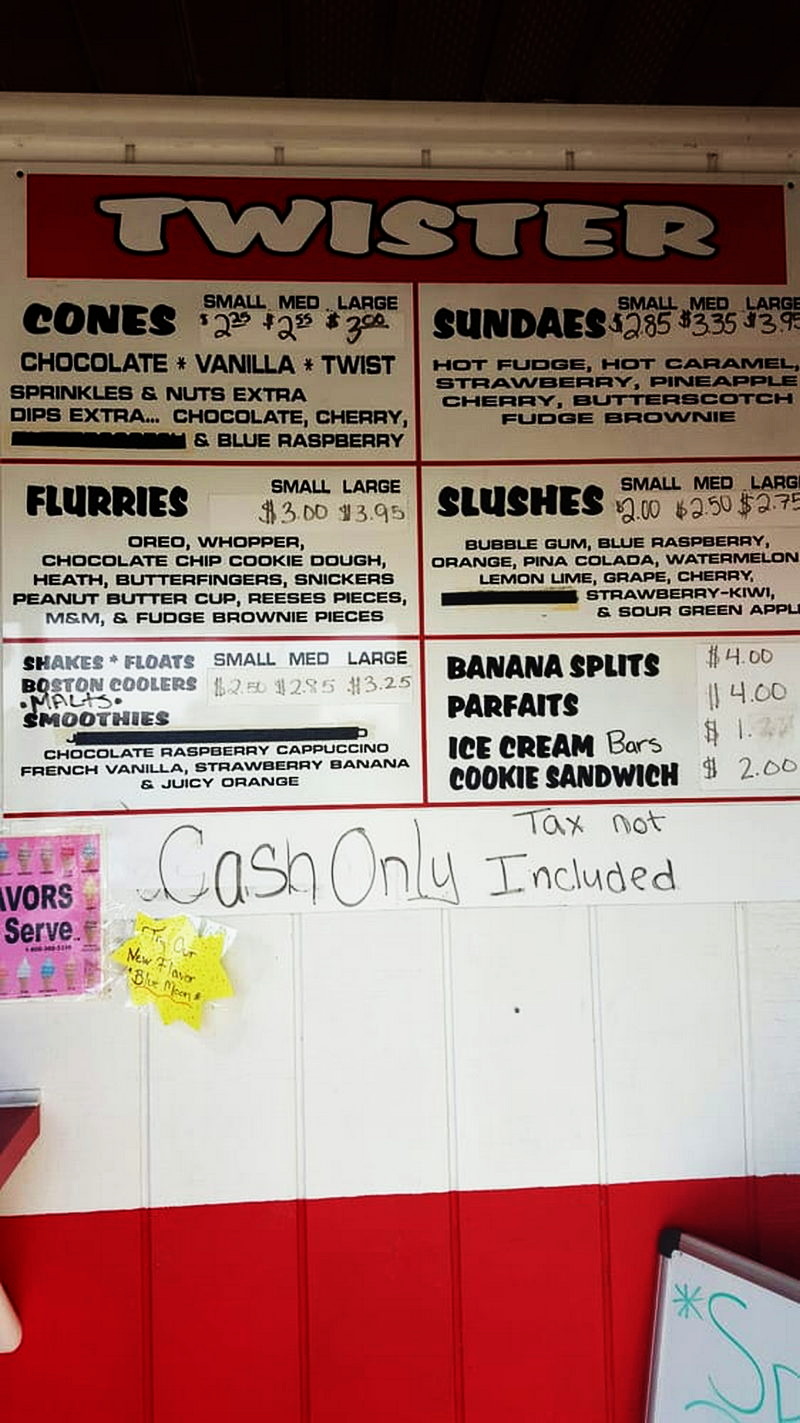 TWISTER
CONES SMALL MED LARGE
$2.25 $2.55 $3.00
CHOCOLATE * VANILLA * TWIST
SPRINKLES & NUTS EXTRA
DIPS EXTRA... CHOCOLATE, CHERRY,
& BLUE RASPBERRY
SUNDAES SMALL MED LARGE
$2.85 $3.35 $3.95
HOT FUDGE, HOT CARAMEL,
STRAWBERRY, PINEAPPLE
CHERRY, BUTTERSCOTCH
FUDGE BROWNIE
FLURRIES SMALL LARGE
$3.00 $3.95
OREO, WHOPPER,
CHOCOLATE CHIP COOKIE DOUGH,
HEATH, BUTTERFINGERS, SNICKERS
PEANUT BUTTER CUP, REESES PIECES,
M&M, & FUDGE BROWNIE PIECES
SLUSHES SMALL MED LARG
$2.00 $2.50 $2.75
BUBBLE GUM, BLUE RASPBERRY,
ORANGE, PINA COLADA, WATERMELON
LEMON LIME, GRAPE, CHERRY,
STRAWBERRY-KIWI,
& SOUR GREEN APPL
SHAKES * FLOATS SMALL MED LARGE
BOSTON COOLERS $2.50 $2.85 $3.25
•MALTS•
SMOOTHIES
CHOCOLATE RASPBERRY CAPPUCCINO
FRENCH VANILLA, STRAWBERRY BANANA
& JUICY ORANGE
BANANA SPLITS $4.00
PARFAITS 4.00
ICE CREAM Bars $ 1.
COOKIE SANDWICH $ 2.00
Cash Only Tax not
Included
AVORS
Serve
Try Our
New Flavor
"Blue Moon"
*Sp